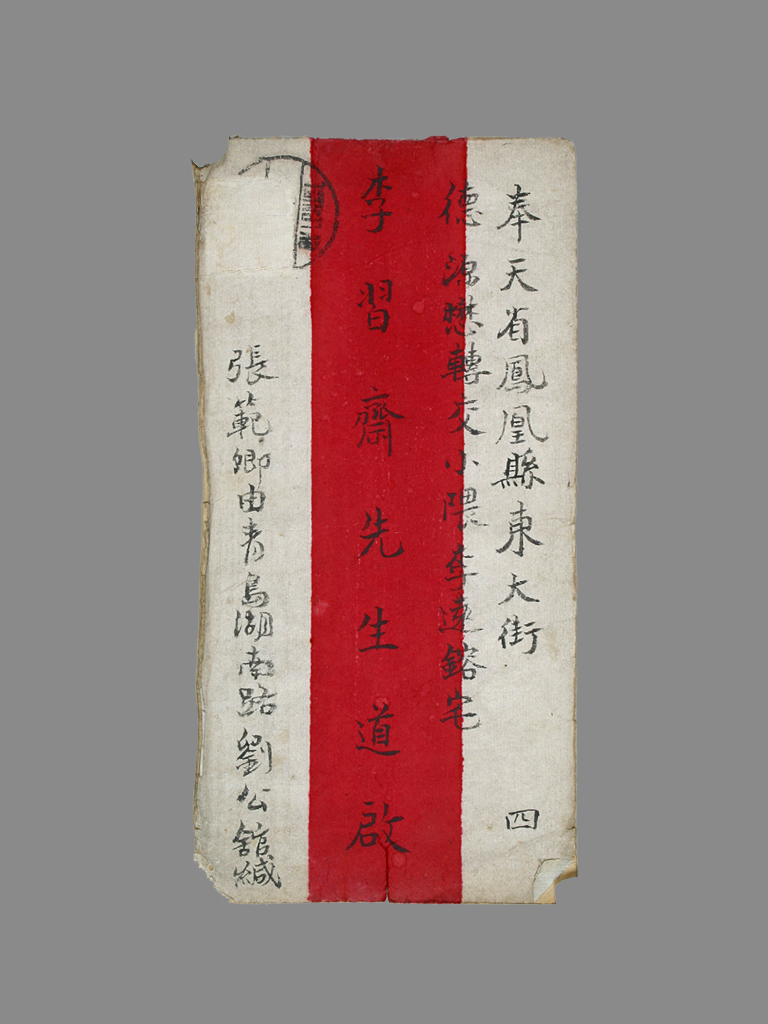 奉天省鳳凰縣東大街
德源懋轉交小隈李遠鎔宅
四
李習齋先生道啟
張範卿由青島湖南路劉公舘緘